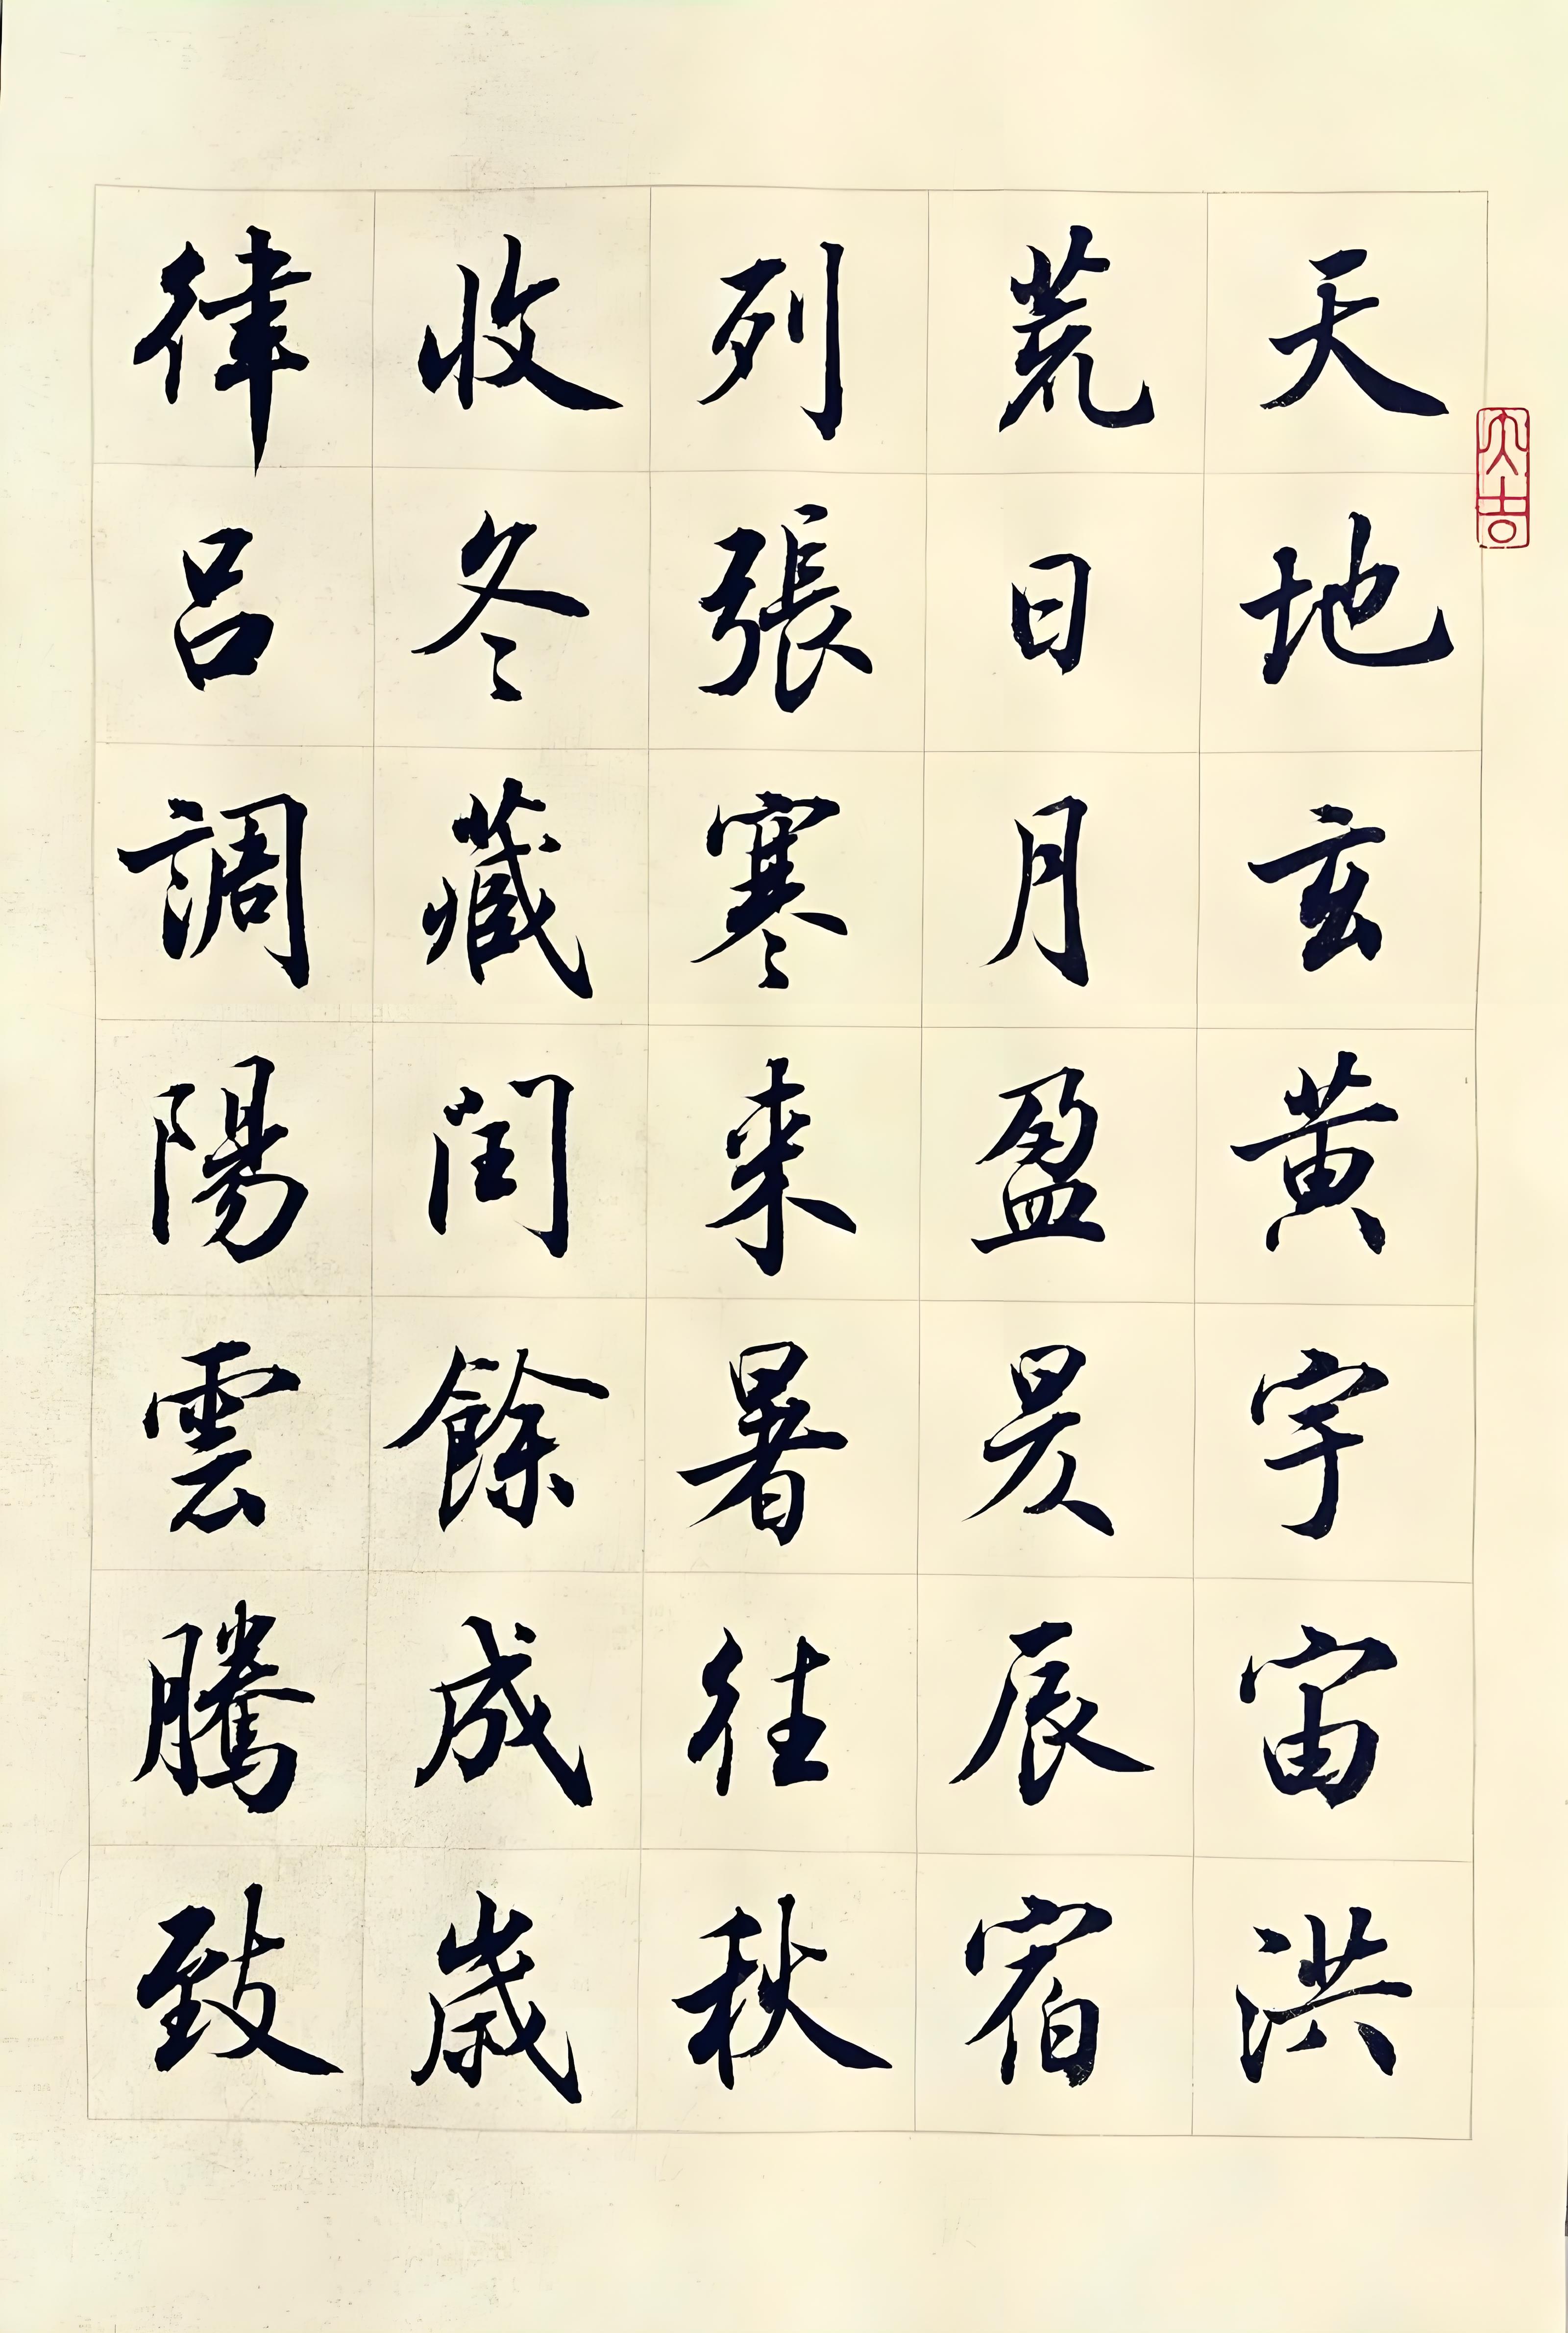 天地玄黄宇宙洪
荒日月盈昃辰宿
列張寒来暑往秋
收冬藏閏餘成歲
律呂調陽雲騰致
大吉